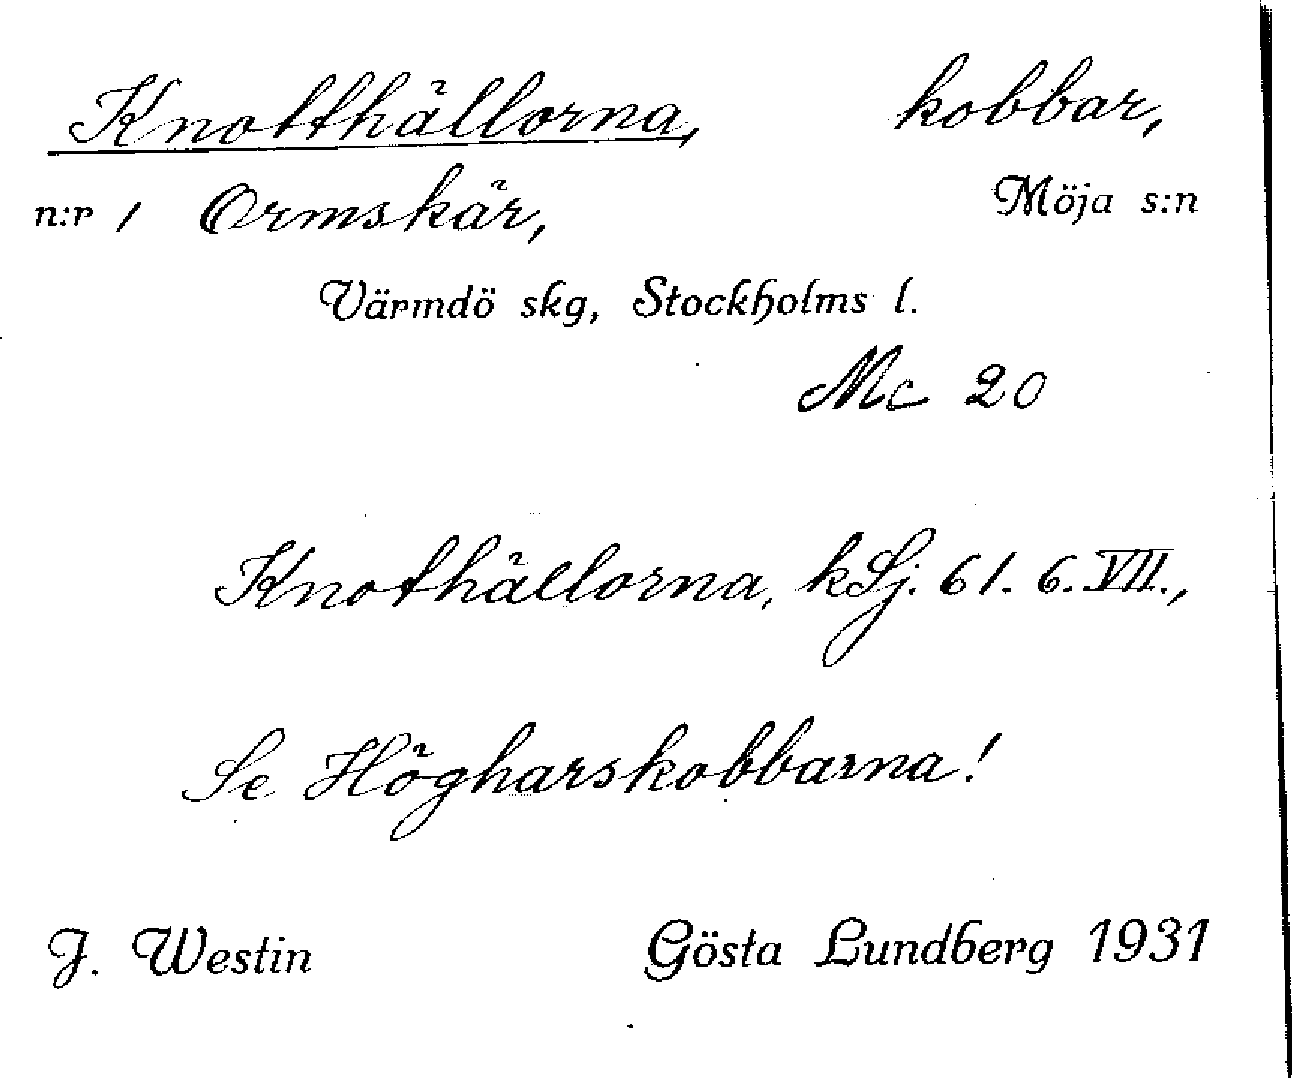 Knotthällorna, kobbar,
n:r 1 Ormskär, Möja s:n
Värmdö skg, Stockholms l.
Mc 20
Knothällorna, kSj. 61. 6. VII.,
Se Högharskobbarna!
J. Westin Gösta Lundberg 1931